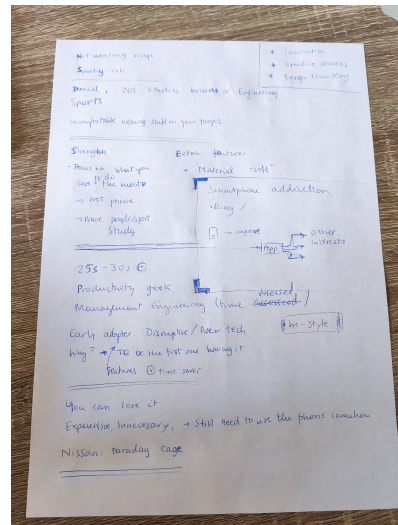 Not wearing rings
* Innovation
* Creative process
* Design thinking
20s, studies business or Engineering
Sports
Uncomfortable wearing stuff on your fingers
Strengths
Extra features
- Focus on what you
care the most
- Material "soft"
→ Not phone
→ More people/sport
Study
Smartphone addiction
• Ring /
→ improve
App
other
interests
25s - 30s €
Productivity geek
Management Engineering (time obsessed)
Early adopter. Disruptive / New tech
Why? → To be the first one having it
Features
time saver
life-style
You can lose it
Expensive, Unnecesary, → Still need to use the phone somehow
Nissan: Faraday cage